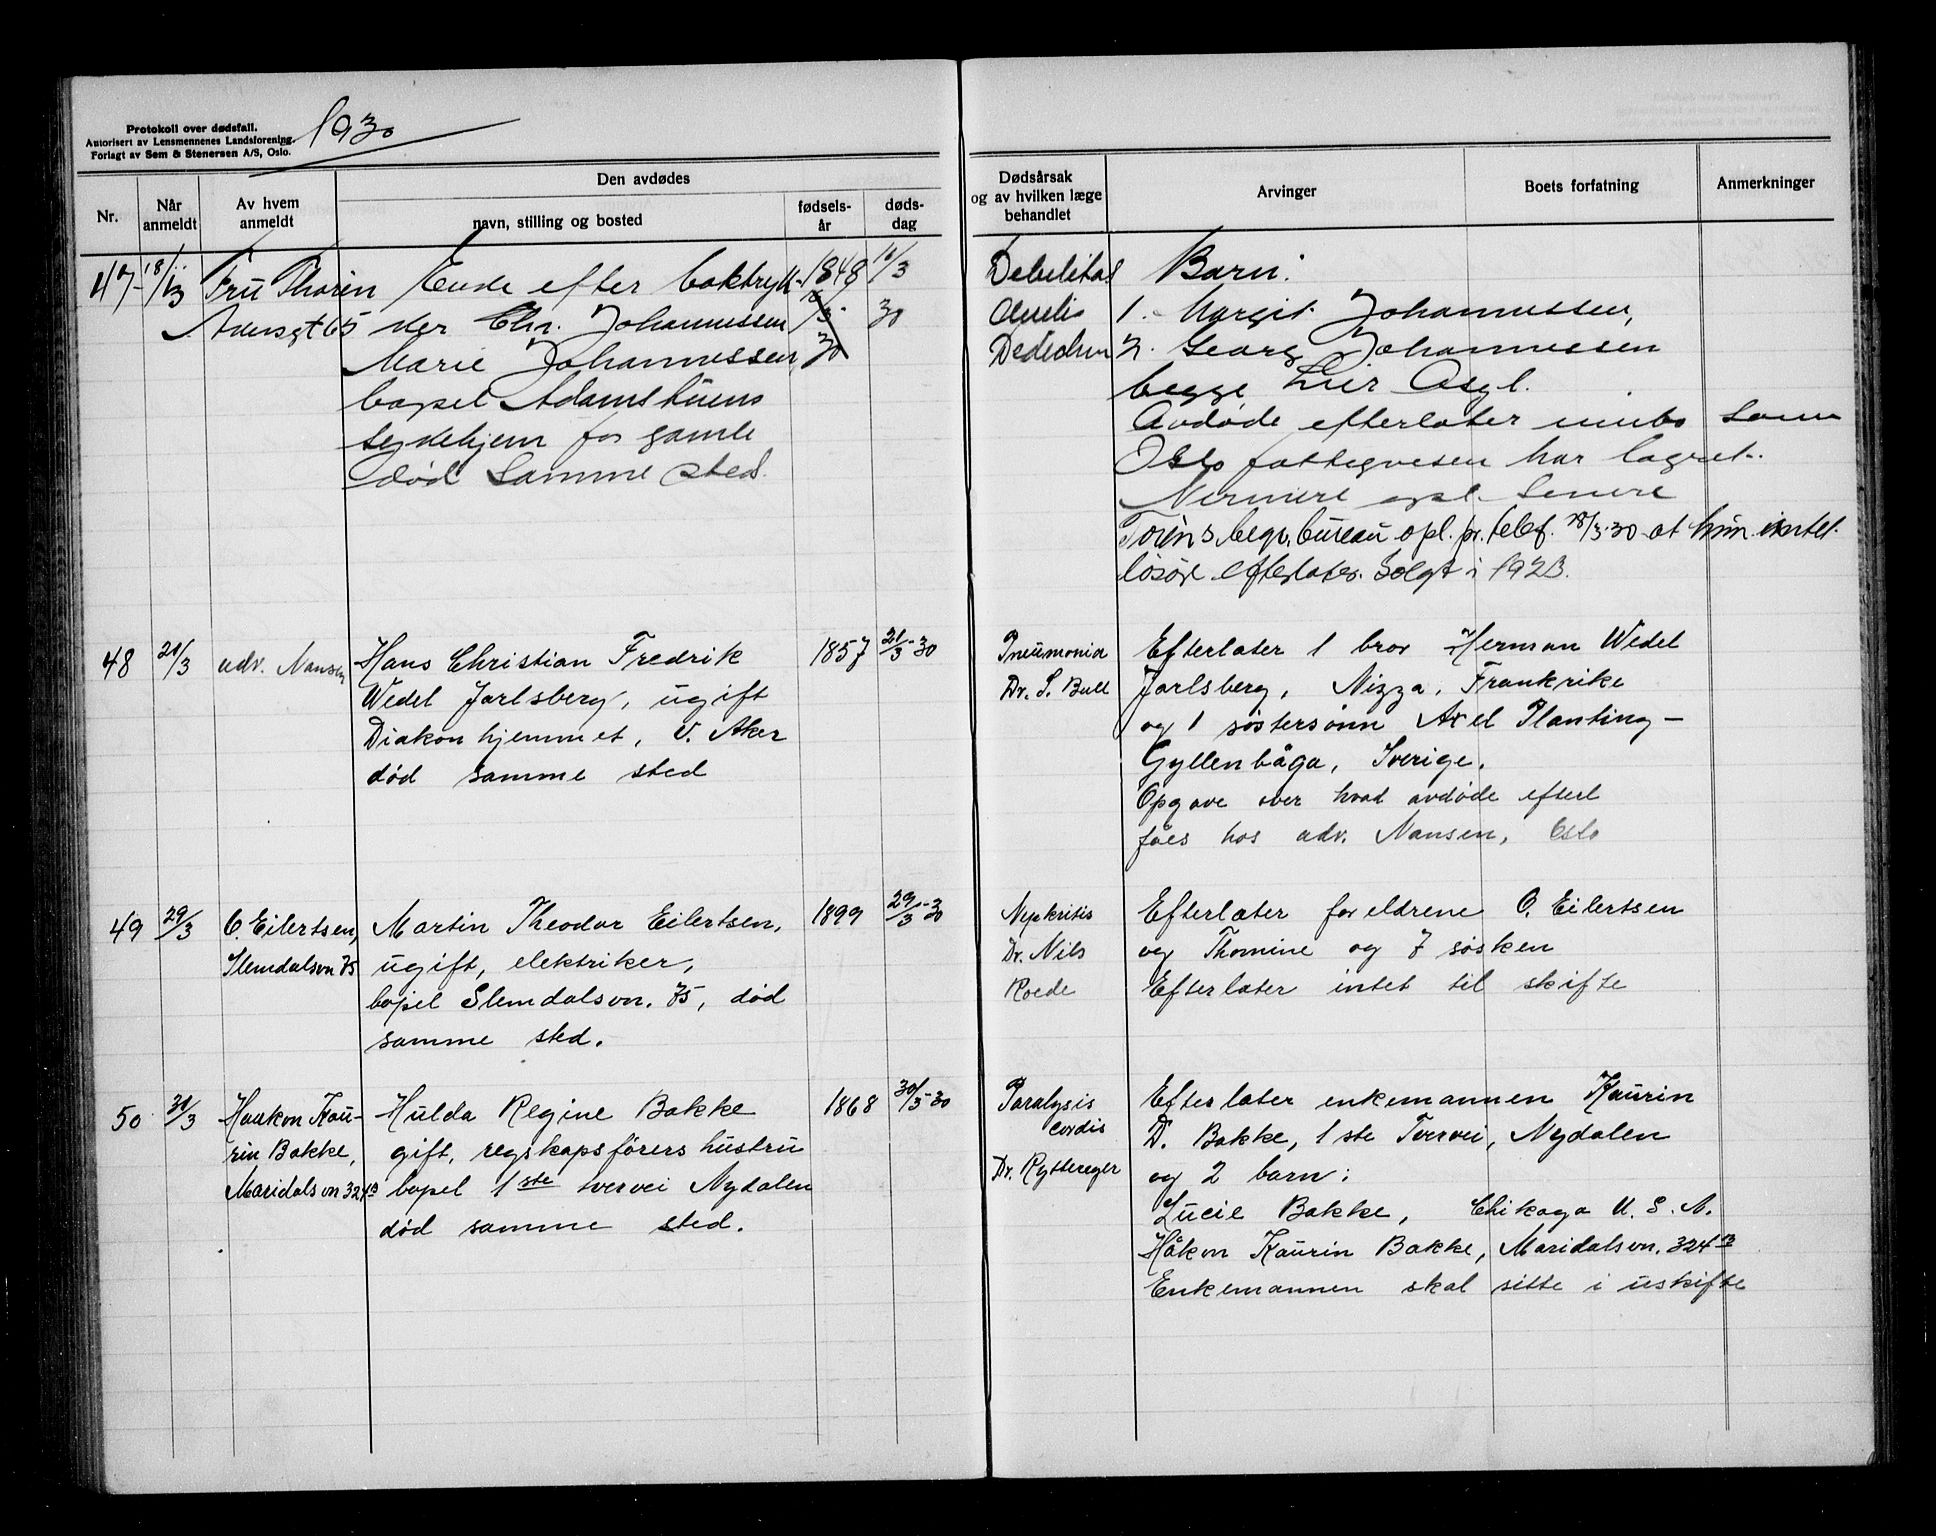 Protokoll over dødsfall.
Autorisert av Lensmennenes Landsforening.
Forlagt av Sem & Stenersen A/S, Oslo.
1930
Nr.
Når anmeldt
Av hvem anmeldt
Den avdødes
navn, stilling og bosted
fødselsår
dødsdag
Dødsårsak og av hvilken læge behandlet
Arvinger
Boets forfatning
Anmerkninger
47
18/3
Fru Thorén
Enke efter boktryk-
ker Chr. Johannessen
Marie Johannessen
bopel Adamstuens
sykehjem for gamle
død samme sted.
1848
16/3
30
Debelitas
Barn:
1. Margit Johannessen,
2. Georg Johannessen
begge Lier Asyl.
Avdøde efterlater innbo som
Oslo fattigvesen har lagret.
Nermere opl. senere
Toréns begr. bureau opl. pr. telef. 18/3-30 at hun intet
løsøre efterlater. Solgt i 1923.
48
21/3
adv. Nansen
Hans Christian Fredrik
Wedel Jarlsberg, ugift
Diakonhjemmet, V. Aker
død samme sted
1857
21/3-30
Pneumonia
Dr. S. Bull
Efterlater 1 bror Herman Wedel
Jarlsberg, Nizza, Frankrike
og 1 søstersønn Axel Planting-
Gyllenbåga, Sverige.
Opgave over hvad avdøde efterl
fåes hos adv. Nansen, Oslo
49
29/3
O. Eilertsen,
Slemdalsvn 75
Martin Theodor Eilertsen,
ugift, elektriker,
bopel Slemdalsvn. 75, død
samme sted.
1899
29/3-30
Nepkritis
Dr. Nils
Roede
Efterlater foreldrene O. Eilertsen
og Thomine og 7 søsken
Efterlater intet til skifte
50
31/3
Haakon Kau-
rin Bakke,
Maridalsvn 324 B
Hulda Regine Bakke
gift, regskapsførers hustru
bopel 1ste tvervei Nydalen
død samme sted.
1868
30/3-30
Paralysis
cordis
Dr. Ryttereger
Efterlater enkemannen Kaurin
D. Bakke, 1 ste Tvervei, Nydalen
og 2 barn:
Lucie Bakke, Chikago U.S.A.
Håkon Kaurin Bakke, Maridalsvn. 324 B
Enkemannen skal sitte i uskifte